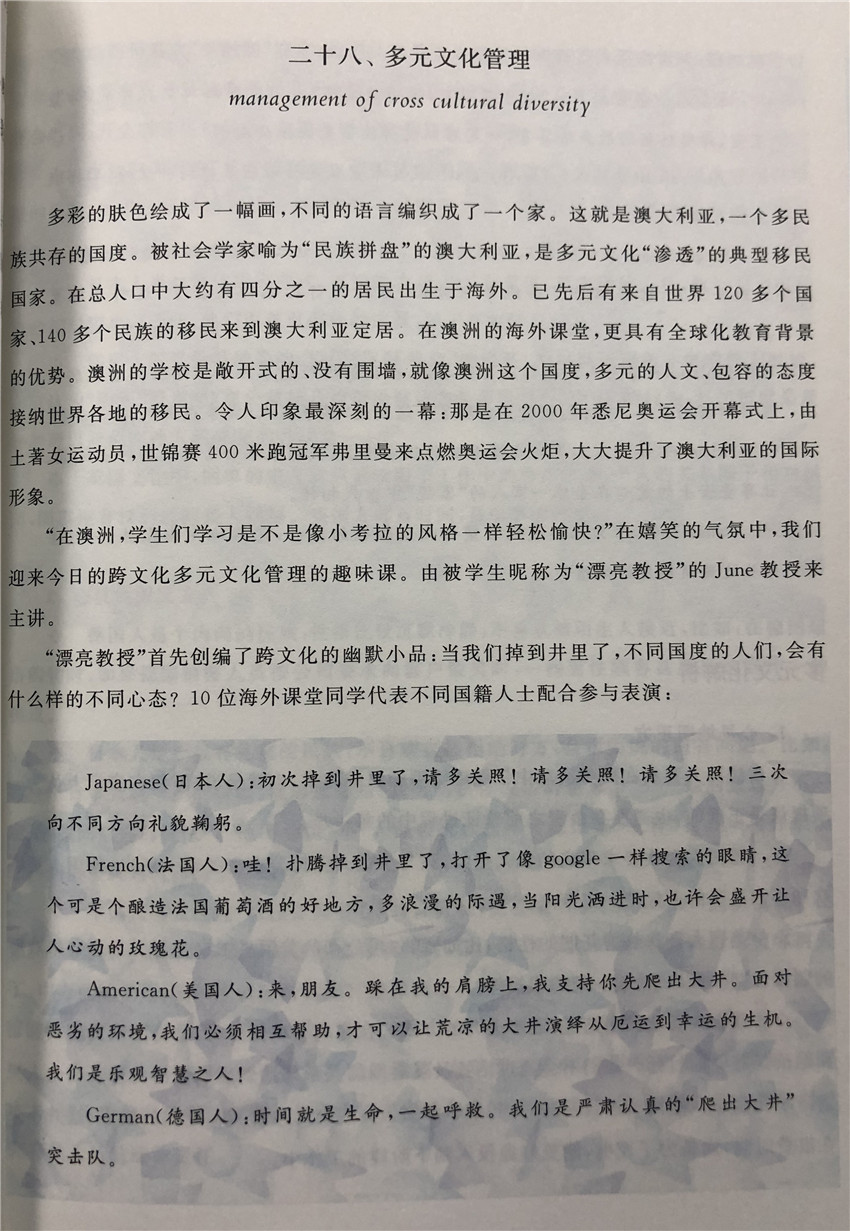 二十八、多元文化管理
management of cross cultural diversity
多彩的肤色绘成了一幅画,不同的语言编织成了一个家。这就是澳大利亚,一个多民
族共存的国度。被社会学家喻为“民族拼盘”的澳大利亚,是多元文化“渗透”的典型移民
国家。在总人口中大约有四分之一的居民出生于海外。已先后有来自世界 120 多个国
家、140 多个民族的移民来到澳大利亚定居。在澳洲的海外课堂,更具有全球化教育背景
的优势。澳洲的学校是敞开式的、没有围墙,就像澳洲这个国度,多元的人文、包容的态度
接纳世界各地的移民。令人印象最深刻的一幕:那是在 2000 年悉尼奥运会开幕式上,由
土著女运动员,世锦赛 400 米跑冠军弗里曼来点燃奥运会火炬,大大提升了澳大利亚的国际
形象。
“在澳洲,学生们学习是不是像小考拉的风格一样轻松愉快?”在嬉笑的气氛中,我们
迎来今日的跨文化多元文化管理的趣味课。由被学生昵称为“漂亮教授”的 June 教授来
主讲。
“漂亮教授”首先创编了跨文化的幽默小品:当我们掉到井里了,不同国度的人们,会有
什么样的不同心态? 10 位海外课堂同学代表不同国籍人士配合参与表演:
Japanese(日本人):初次掉到井里了,请多关照! 请多关照! 请多关照! 三次
向不同方向礼貌鞠躬。
French(法国人):哇! 扑腾掉到井里了,打开了像 google 一样搜索的眼睛,这
个可是个酿造法国葡萄酒的好地方,多浪漫的际遇,当阳光洒进时,也许会盛开让
人心动的玫瑰花。
American(美国人):来,朋友。踩在我的肩膀上,我支持你先爬出大井。面对
恶劣的环境,我们必须相互帮助,才可以让荒凉的大井演绎从厄运到幸运的生机。
我们是乐观智慧之人!
German(德国人):时间就是生命,一起呼救。我们是严肃认真的“爬出大井”
突击队。